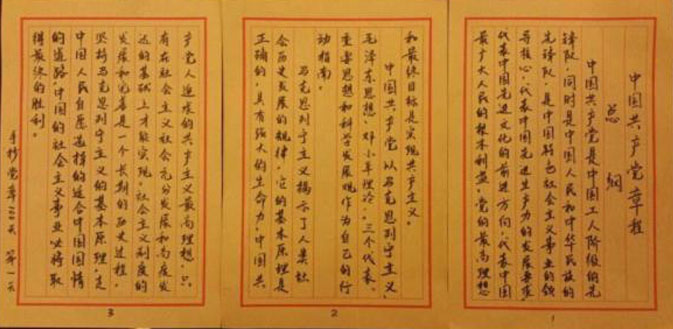 中国共产党章程
总纲
中国共产党是中国工人阶级的先
锋队,同时是中国人民和中华民族的
先锋队,是中国特色社会主义事业的领
导核心,代表中国先进生产力的发展要求
代表中国先进文化的前进方向,代表中国
最广大人民的根本利益。党的最高理想
1
和最终目标是实现共产主义。
中国共产党以马克思列宁主义、
毛泽东思想、邓小平理论、三个代表、
重要思想和科学发展观作为自己的行
动指南。
马克思列宁主义揭示了人类社
会历史发展的规律,它的基本原理是
正确的,具有强大的生命力。中国共
2
产党人追求的共产主义最高理想,只
有在社会主义社会充分发展和高度发
达的基础上才能实现。社会主义制度的
发展和完善是一个长期的历史过程。
坚持马克思列宁主义的基本原理,走
中国人民自愿选择的适合中国国情
的道路,中国的社会主义事业必将取
得最终的胜利。
手抄党章100天 第一天
3